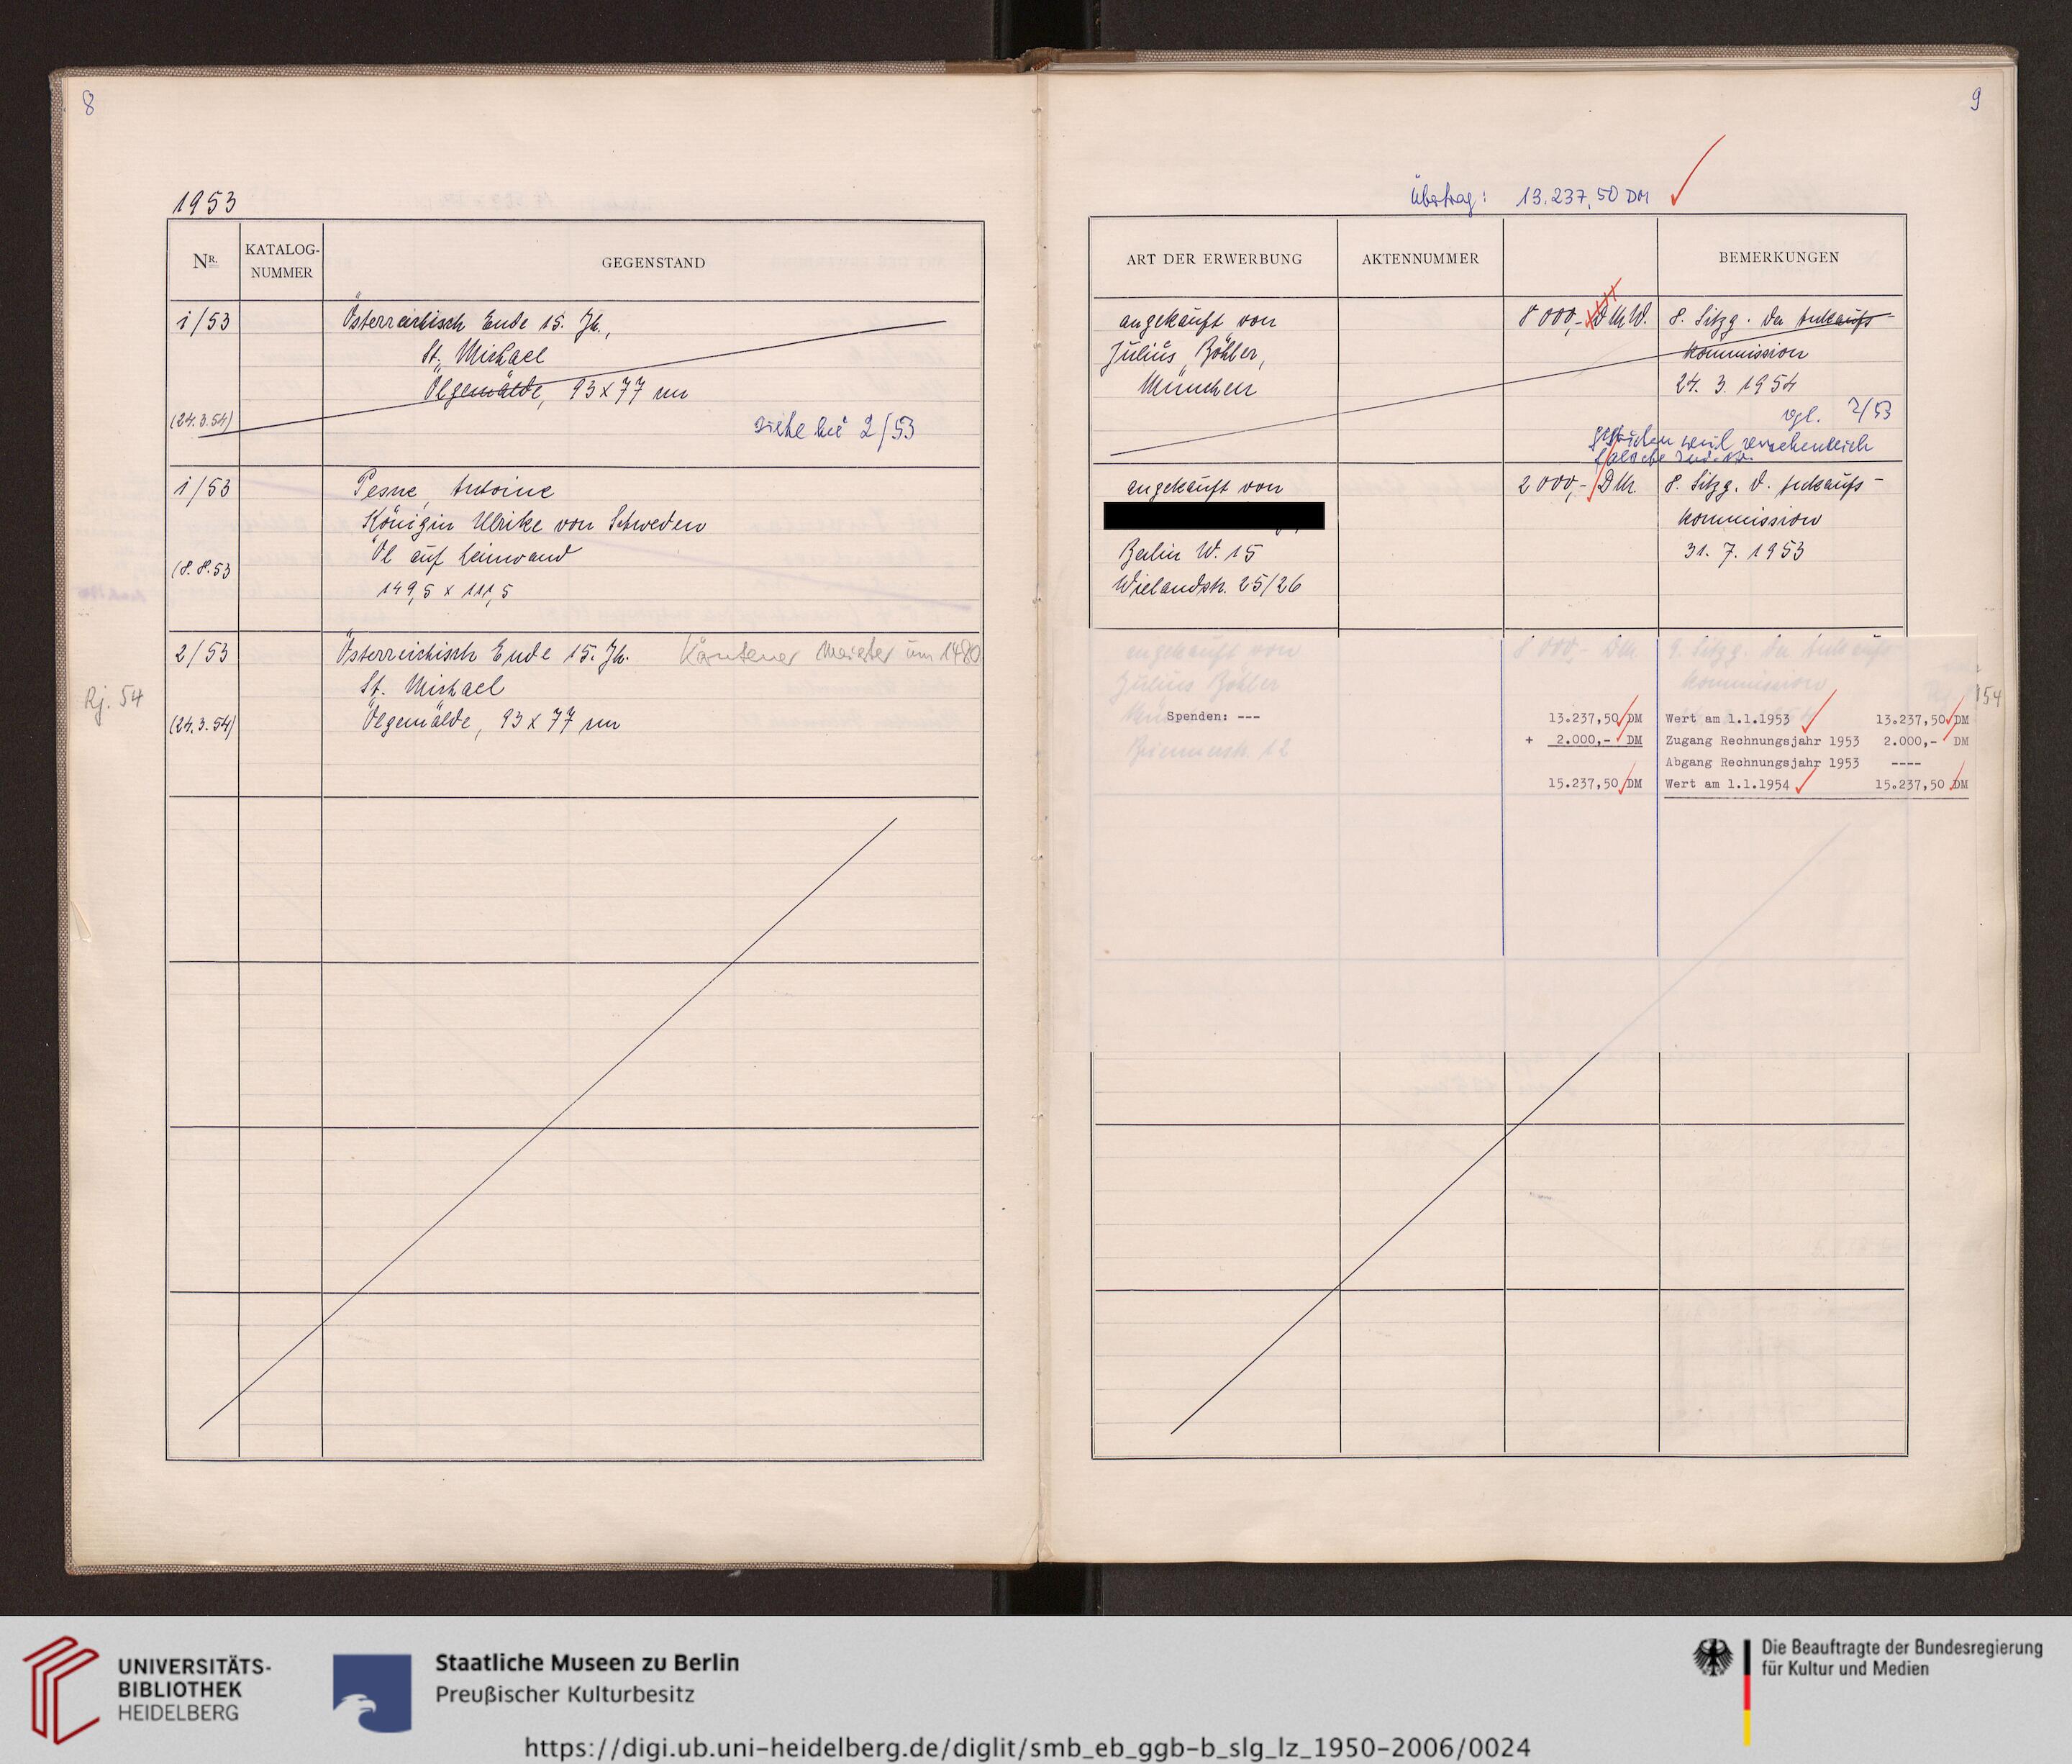 8
1953
NR.
KATALOG-
NUMMER
GEGENSTAND
1/53
Österreichisch Ende 15. Jh.,
St. Michael
Ölgemälde, 93 x 77 cm
(24.3.54)
siehe bei 2/53
1/53
Pesne, Antoine
Königin Ulrike von Schweden
Öl auf Leinwand
(8.8.53
149,5 x 111,5
2/53
Österreichisch Ende 15. Jh. Kärntener Meister um 1480
St. Michael
Rj. 54
(24.3.54)
Ölgemälde, 93 x 77 cm
9
Übertrag: 13.237,50 DM
ART DER ERWERBUNG
AKTENNUMMER
BEMERKUNGEN
angekauft von
Julius Böhler,
München
8 000,-
8. Sitzg. der Ankaufs-
kommission
24. 3. 1954
vgl. 2/53
gestrichen weil versehentlich
falsche Inv. Nr.
angekauft von
Berlin W. 15
Wielandstr. 25/26
2 000,- DM.
8. Sitzg. d. Ankaufs-
kommission
31. 7. 1953
angekauft von
Julius Böhler
Briennerstr. 12
8 000,- DM
9. Sitzg. der Ankaufs-
kommission
54
Spenden: ---
13.237,50 DM
+ 2.000,- DM
15.237,50 DM
Wert am 1.1.1953 13.237,50 DM
Zugang Rechnungsjahr 1953 2.000,- DM
Abgang Rechnungsjahr 1953 ----
Wert am 1.1.1954 15.237,50 DM
UNIVERSITÄTS-
BIBLIOTHEK
HEIDELBERG
Staatliche Museen zu Berlin
Preußischer Kulturbesitz
Die Beauftragte der Bundesregierung
für Kultur und Medien
https://digi.ub.uni-heidelberg.de/diglit/smb_eb_ggb-b_slg_lz_1950-2006/0024